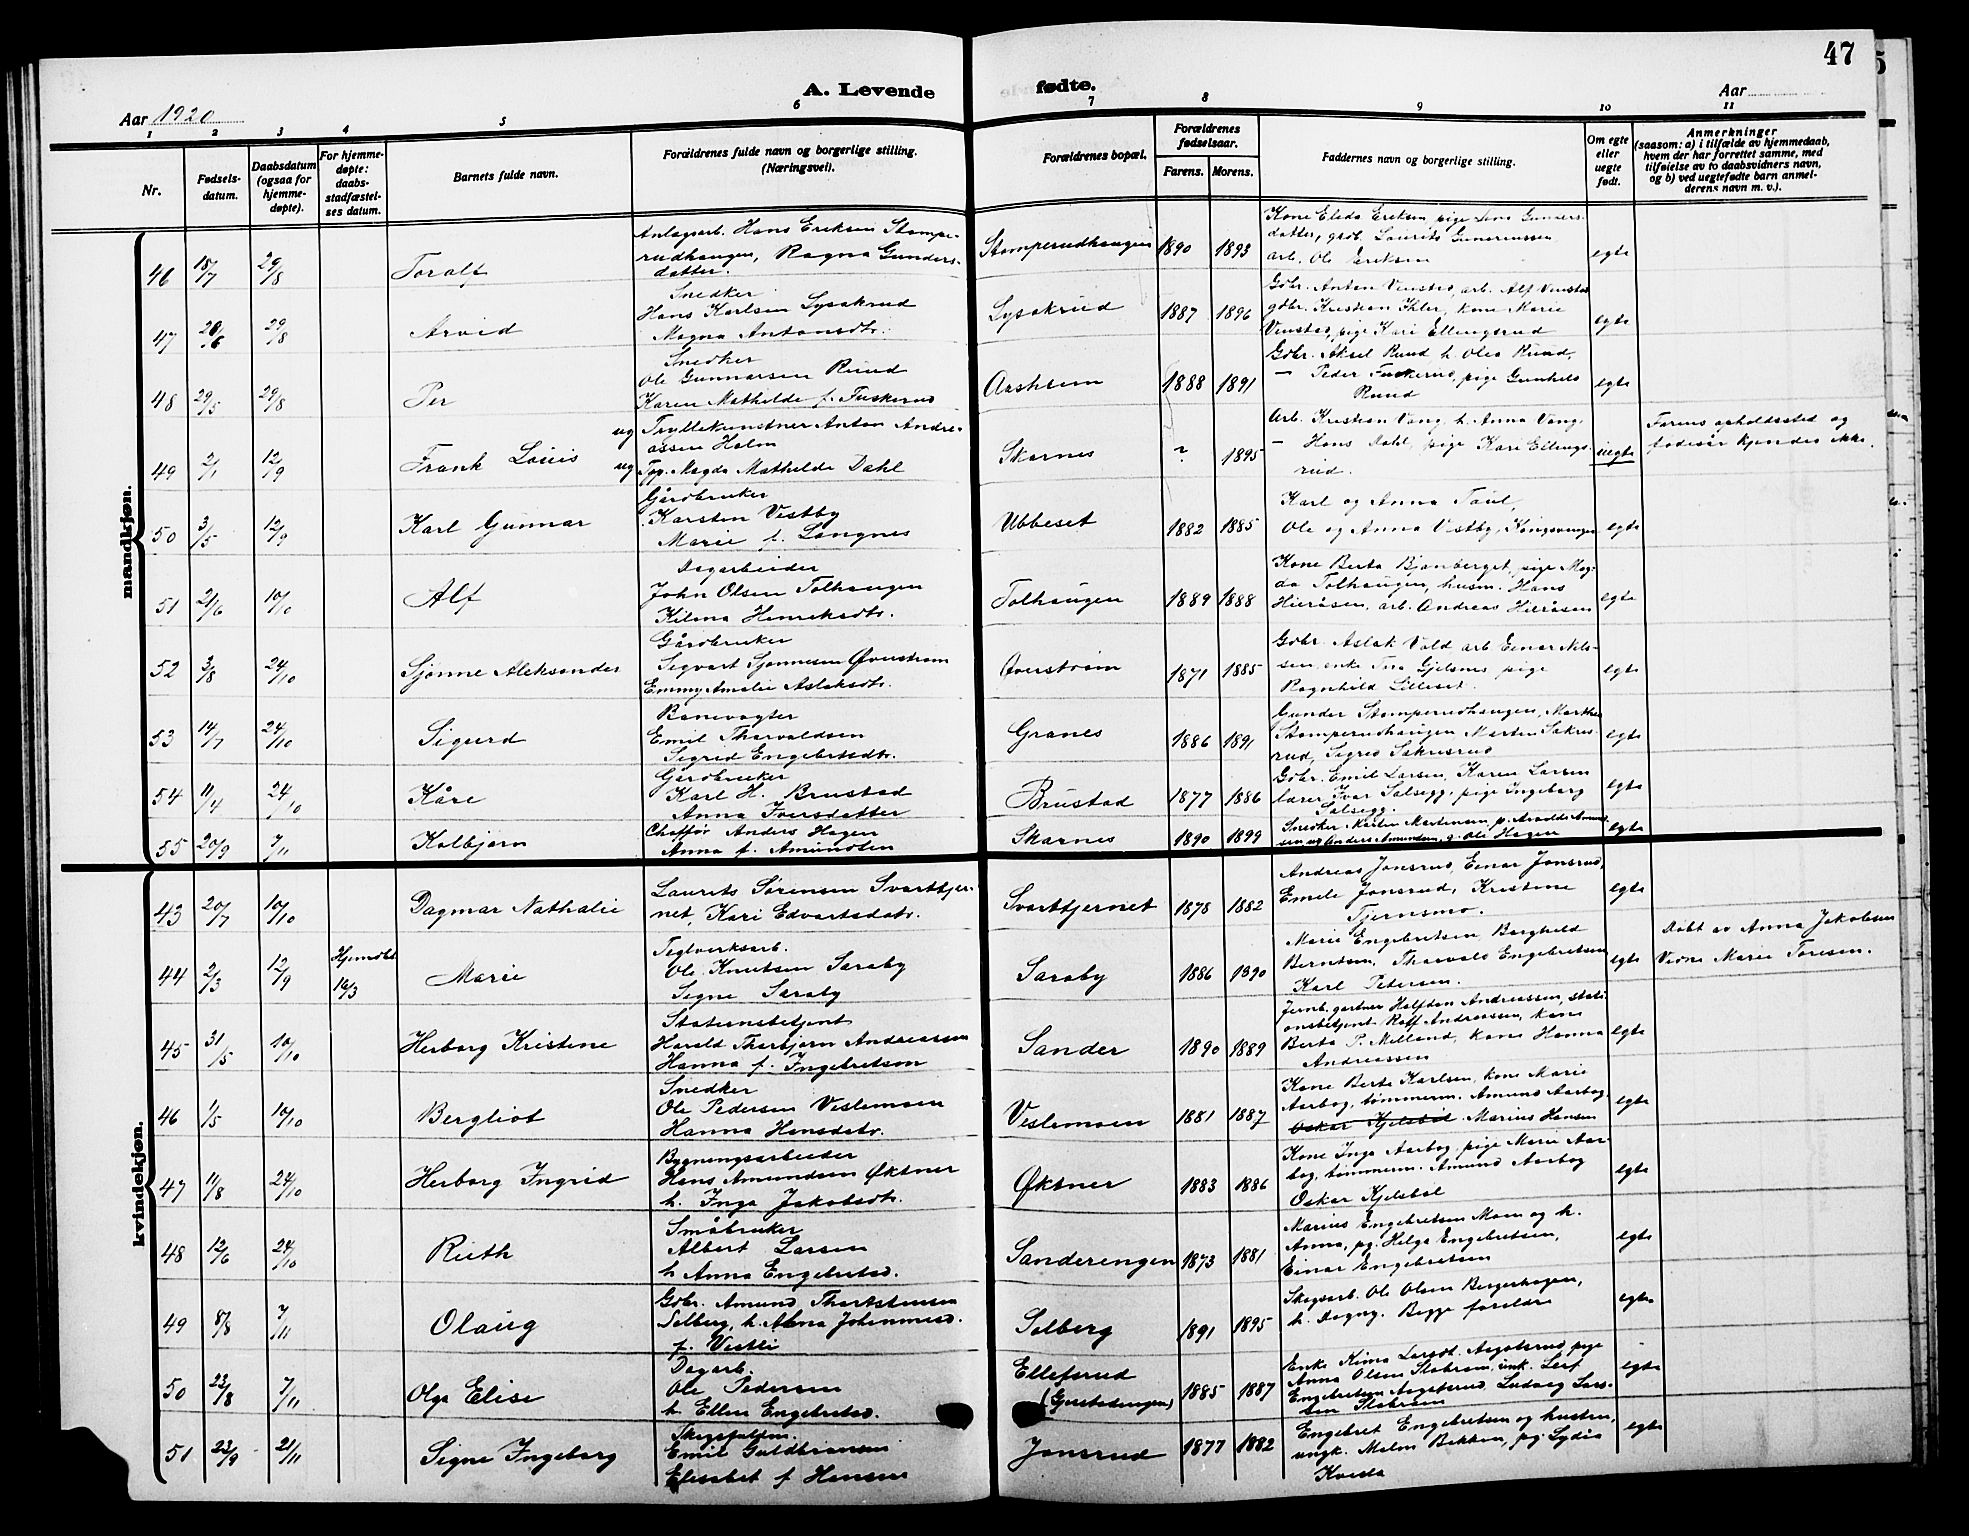 47
A. Levende fødte.
Aar 1920
Aar
1 2 3 4 5 6 7 8 9 10 11
Nr.
Fødsels-datum.
Daabsdatum (ogsaa for hjemme-døpte).
For hjemme-døpte: daabs-stadfæstel-ses datum.
Barnets fulde navn.
Forældrenes fulde navn og borgerlige stilling. (Næringsvei).
Forældrenes bopæl.
Forældrenes fødselsaar.
Farens. Morens.
Faddernes navn og borgerlige stilling.
Om egte eller uegte født.
Anmerkninger
(saasom: a) i tilfælde av hjemmedaab,
hvem der har forrettet samme, med
tilføielse av to daabsvidners navn,
og b) ved uegtefødte barn anmel-
derens navn m. v.).
mandkjøn.
46 18/7 29/8 Toralf
Anlagsarb. Hans Eriksen Stampe-
rudhaugen, Ragna Gunders-
datter.
Stamperudhaugen 1890 1893
arb. Ole Eriksen
egte
47 28/6 29/8 Arvid
Snedker
Hans Karlsen Lysakrud
Magna Antonsdtr.
Lysakrud 1887 1896
Gbr. Anton Venstad, arb. Alf Venstad
gbr. Kristian Ihler, kone Marie
Venstad, pige Kari Ellingsrud
egte
48 29/5 29/8 Per
Snedker
Ole Gunnarsen Ruud
Karen Mathilde f. Fuskerud
Aasheim 1888 1891
Gbr. Aksel Ruud h. Olea Ruud,
— Peder Fuskerud, pige Gunhild
Ruud
egte
49 2/1 12/9 Frank Louis
ug Tryllekunstner Anton Andre-
assen Holm
ug Tpg. Magda Mathilde Dahl
Skarnes ? 1895
Arb. Kristian Vang, h. Anna Vang
— Hans Dahl, pige Kari Ellings-
rud.
uegte
Farens opholdssted og
fødeår kjendes ikke.
50 3/5 12/9 Karl Gunnar
Gårdbruker
Karsten Vestby
Marie f. Langnes
Ubbeset 1882 1885
Karl og Anna Taul,
Ole og Anna Vestby, Kongsvinger
egte
51 21/6 10/10 Alf
Dagarbeider
John Olsen Tolhaugen
Kilma Henriksdtr.
Tolhaugen 1889 1888
Kone Berta Bjønberget, pige Mag-
da Tolhaugen, husm. Hans
Hieråsen, arb. Andreas Hieråsen
egte
52 3/8 24/10 Sjønne Aleksander
Gårdbruker
Sigvart Sjønnesen Øverstrøm
Emmy Amalie Aslaksdtr.
Øverstrøm 1871 1885
Gbr. Aslak Vold arb Einar Nils-
sen, enke Tina Gjelsnes pige
Ragnhild Lilleset.
egte
53 14/7 24/10 Sigurd
Banevogter
Emil Tharvaldsen
Sigrid Engebretsdtr.
Granes 1886 1891
Gunder Stamperudhaugen, Marthe
Stamperudhaugen Martin Sakris-
rud, Sigrid Sakrisrud
egte
54 11/4 24/10 Kåre
Gårdbruker
Karl H. Brustad
Anna Iversdatter
Brustad 1877 1886
Gbr. Emil Larsen, Karen Larsen
lærer Ivar Salsegg, pige Ingeborg
Salsegg.
egte
55 20/9 7/11 Kolbjørn
Chaffør Anders Hagen
Anna f. Amundsen
Skarnes 1890 1899
Snedker Martin Martinsen
Anders Amundsen, g. Ole Hagen
egte
kvindekjøn.
43 20/7 10/10 Dagmar Nathalie
Laurits Sørensen Svarttjer-
net, Kari Edvartsdatr.
Svarttjernet 1878 1882
Andreas Jonsrud, Einar Jonsrud,
Emile Jonsrud, Kristine
Tjernsmo.
egte
44 2/3 12/9 Hjemdbt 16/3 Marie
Teglverksarb.
Ole Knutsen Saraby
Signe Saraby
Saraby 1886 1890
Marie Engebretsen, Borghild
Berntsen, Tharvald Engebretsen
Karl Petersen.
egte
Døbt av Anna Jakobsen
Vidne Marie Toresen.
45 31/5 10/10 Herborg Kristine
Stationsbetjent
Harald Tharbjørn Andreassen
Hanna f. Ingebretson
Sander 1890 1889
Jernb.gartner Halfdan Andreassen, stati-
onsbetjent Rolf Andreassen, kone
Berta P. Melland, kone Hanna
Andreassen
egte
46 1/5 10/10 Bergliot
Snedker
Ole Pedersen Veslemoen
Hanna Hansdatr.
Veslemoen 1881 1887
Kone Berte Karlsen, kone Marie
Aarbog, tømmerm. Amund Aarbog
Oskar Kjelsbøl Marius Hansen
egte
47 11/8 24/10 Herborg Ingrid
Bygningsarbeider
Hans Amundsen Øktner
h. Inga Jakobsdtr.
Øktner 1883 1886
Kone Inga Aarbog, pige Marie Aar-
bog, tømmerm. Amund Aarbog
Oskar Kjelsbøl
egte
48 12/6 24/10 Ruth
Småbruker
Albert Larsen
h Anna Engebretsd.
Sanderengen 1873 1881
Marius Engebretsen Moen og h.
Anna, pg. Helga Engebretsen,
Einar Engebretsen
egte
49 8/8 7/11 Olaug
Gbr. Amund Tharstensen
Selberg, h. Anna Johannesd.
f. Vestli
Selberg 1891 1895
Skogsarb. Ole Olsen Bergerhagen,
h. Dagny. Begge foreldre
egte
50 23/8 7/11 Olga Elise
Dagarb.
Ole Pedersen
h Ellen Engebretsd.
Ellefsrud
1885 1887
Anna Olsen Slobraan, unk. Leif
egte
51 23/9 21/11 Signe Ingeborg
Emil Guldbransen
Elisabet f Hansen
Jonsrud 1877 1882
Engebret Engebretsen og hustru,
ungk. Malm Bekken, pg. Lydia
Kveda
egte